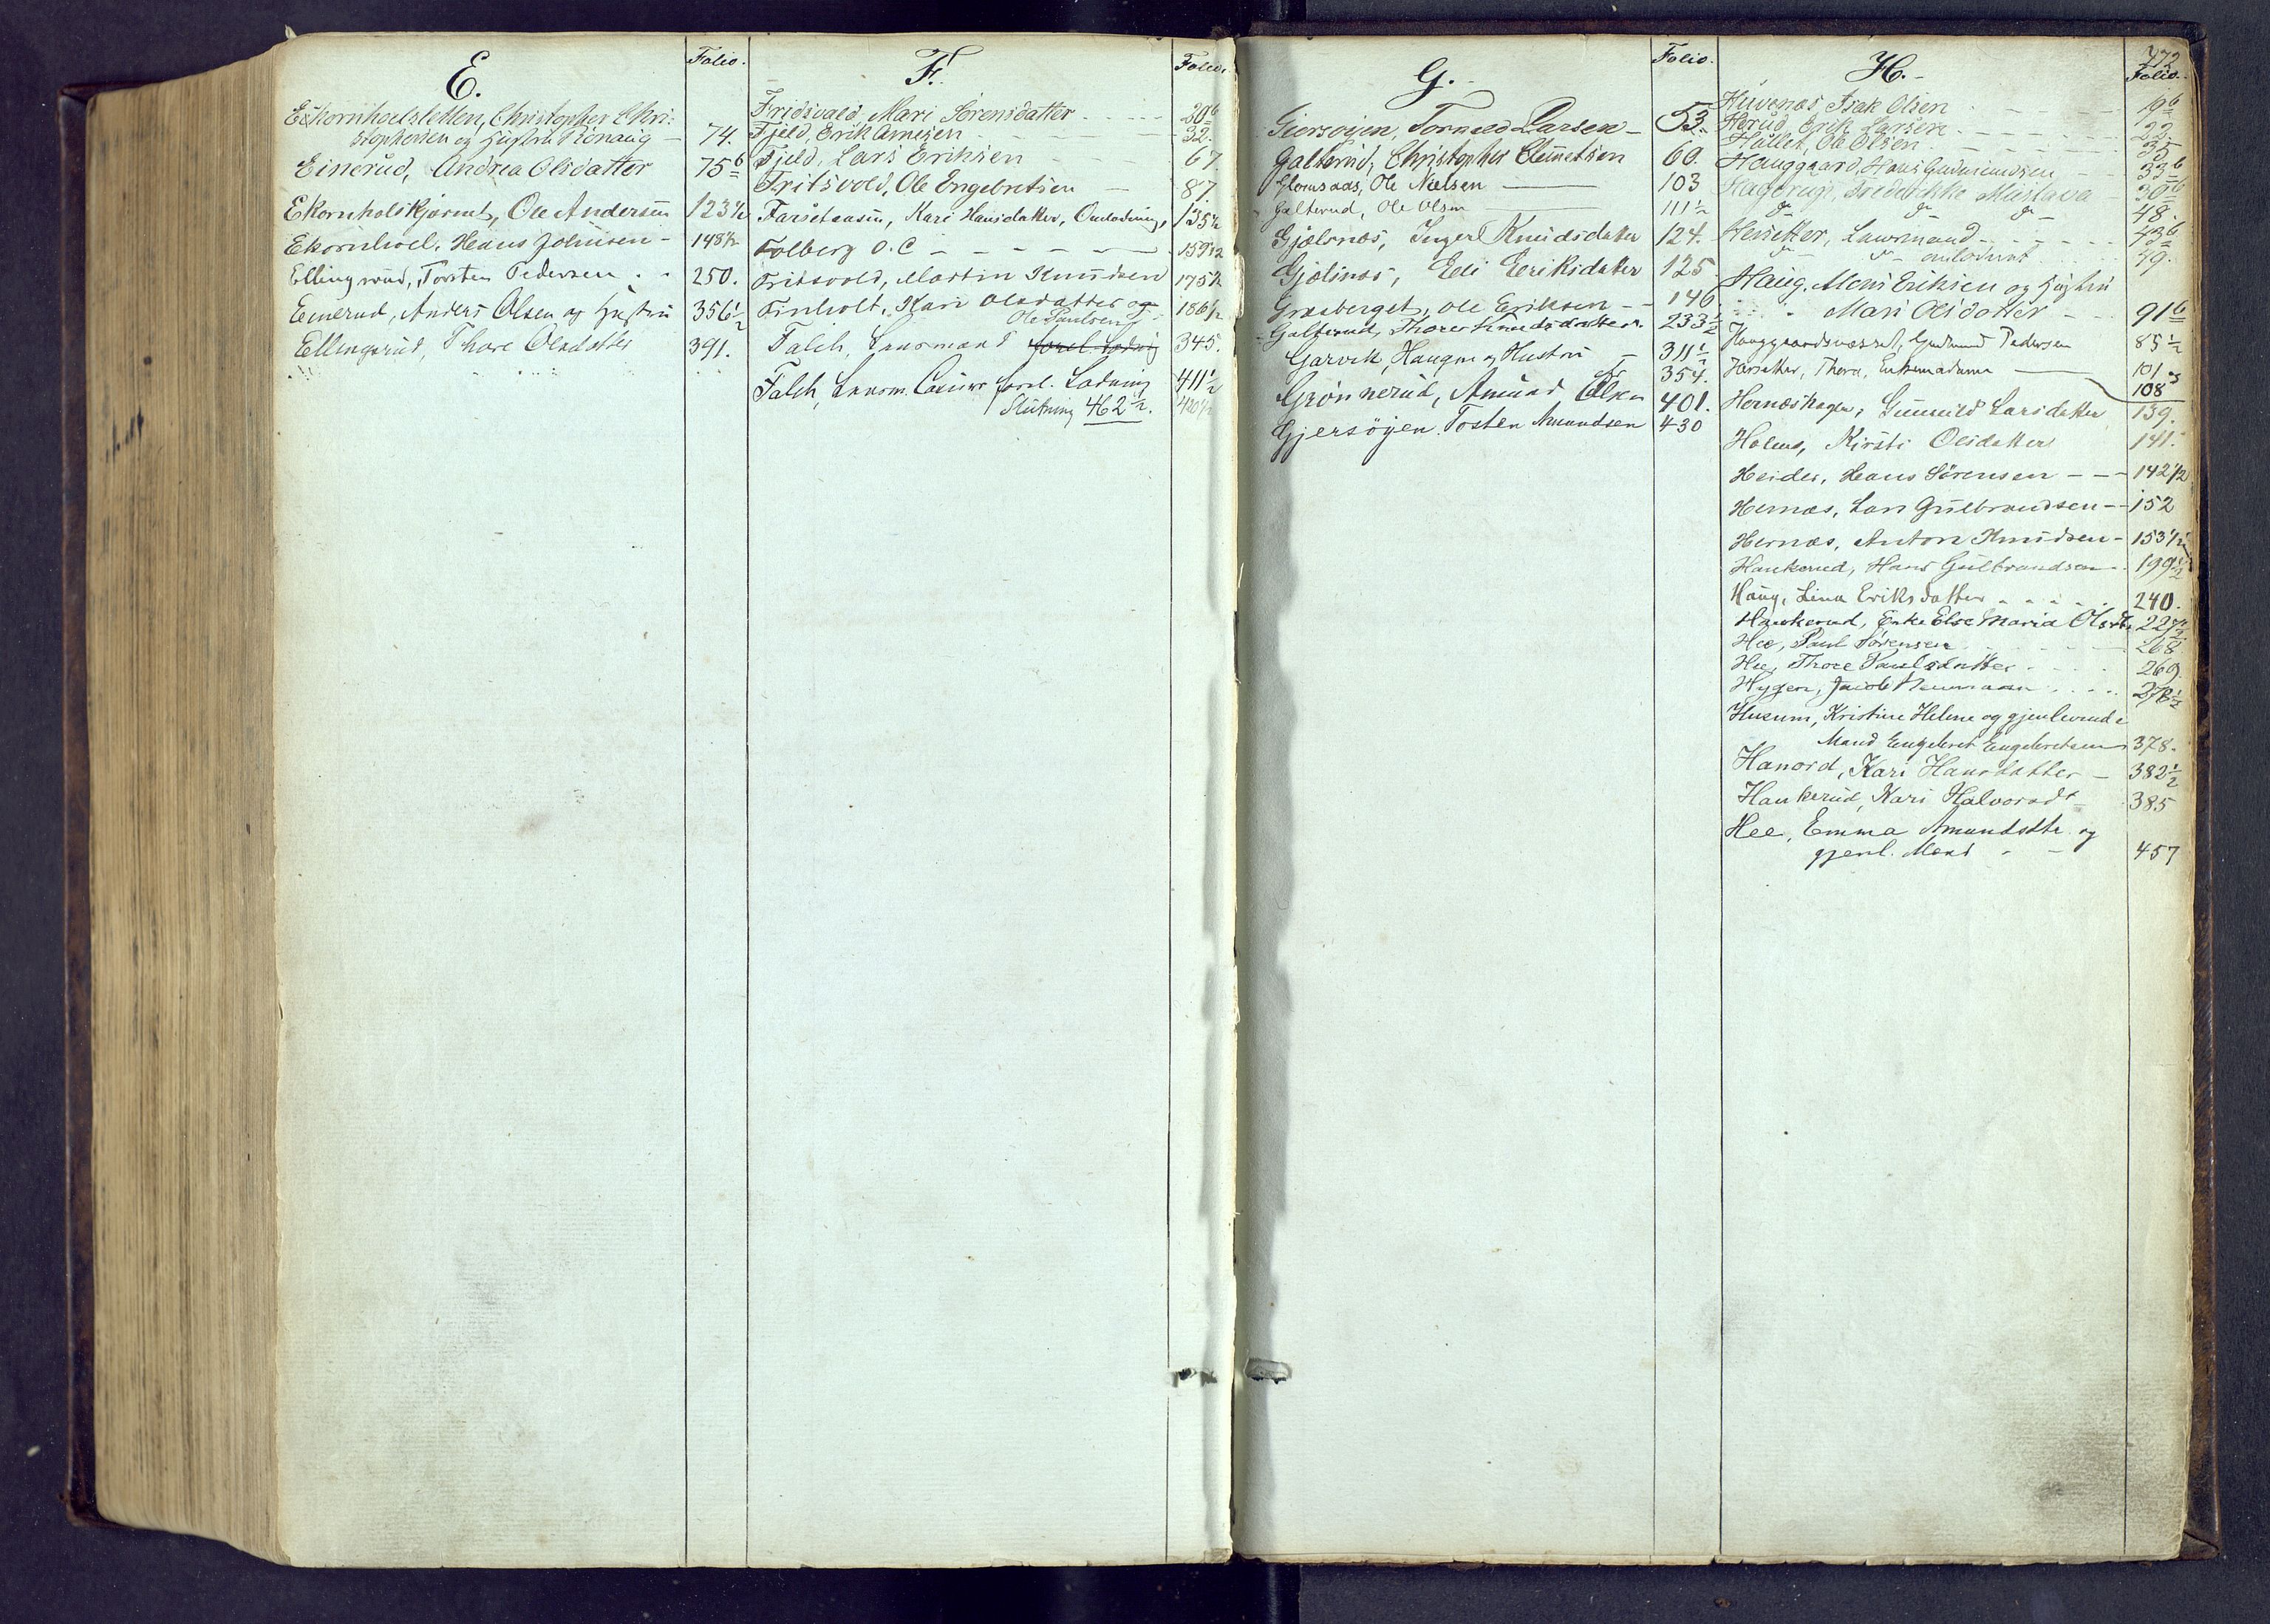 E.
Folio.
Ekornholsletten, Christopher Chri-
stophersen og Hustru Rønaug - 74.
Einerud, Andrea Olsdatter 75 b
Ekornholskjærnet, Ole Andersen 123 1/2
Ekornhoel, Hans Johnsen - 148 1/2
Ellingsrud, Torsten Pedersen . . 250.
Emerud, Anders Olsen og Hustru 356 1/2
Ellingsrud, Thore Olsdatter 391.
F.
Folio.
Fridsvald, Mari Sørensdatter 20 b
Fjeld, Erik Arnesen 32.
Fjeld, Lars Eriksen 67.
Fritsvold, Ole Engebretsen - 87.
Kari Hansdatter, Omlodning, 135 1/2
Folberg O. C - - - 159 1/2
Fritsvold, Martin Knudsen 175 1/2
Finholt, Kari Olsdatter og 186 1/2
Ole Paulsen F.
Falch, Lensmand forel. Lodning 345.
Falch, Lensm. forel. Lodning 411 1/2
Slutning 462 1/2. 420 1/2
G.
Folio.
Giersøyen, Larsen - 53.
Galterud, Christopher Clemetsen 60.
Glomsaas, Ole Nielsen 103
Galterud, Ole Olsen 111 1/2
Gjølsnæs, Inger Knudsdatter 124.
Gjølsnæs, Eli Eriksdatter 125.
Græsberget, Ole Eriksen - - 146
Galterud, Thore Knudsdatter. 233 1/2
Garvik, Haagen og Hustru - 311 1/2
Grønnerud, Amund Olsen 354.
401.
Gjersøyen. Tosten Amundsen 430
H.
772
Folio.
Huvenæs, Isak Olsen 19 b
Herud, Erik Larsen 22
Hullet, Ole Olsen 35
Hauggaard, Hans Gudmundsen 33 b
Hagerup, Frederikke Mustava 30 b
do do do 48.
Henetter, Lensmand 43 b
do do omlodnet 49.
Haug, Mons Eriksen og Hustru
Mari Olsdatter - - 91 b
Hauggaardsvæsset, Gudmund Pedersen 85 1/2
Thora, Enkemadame 101 og
108
Hernæshagen, Gunnild Larsdatter 139.
Holme, Kirsti Olsdatter 141.
Heider, Hans Sørensen - - - 142 1/2
Hernæs, Lars Gulbrandsen - - 152
Hernæs, Anton Knudsen - 153 1/2
Haukerud, Hans Gulbrandsen 199 1/2
Haug, Lina Eriksdatter 240.
Haukerud, Enke Else Maria Olsdtr 227 1/2
Hee, Paul Sørensen 268
Hee, Thore Paulsdatter 269
Hygen, Jacob Neumann 278 1/2
Husum, Kristine Helene og gjenlevende
Mand Engebret Engebretsen 378.
Hanord, Kari Hansdatter - 382 1/2
Haukerud, Kari Halvorsdr 385
Hee, Emma Amundsdtr og
gjenl. Mand - - 457